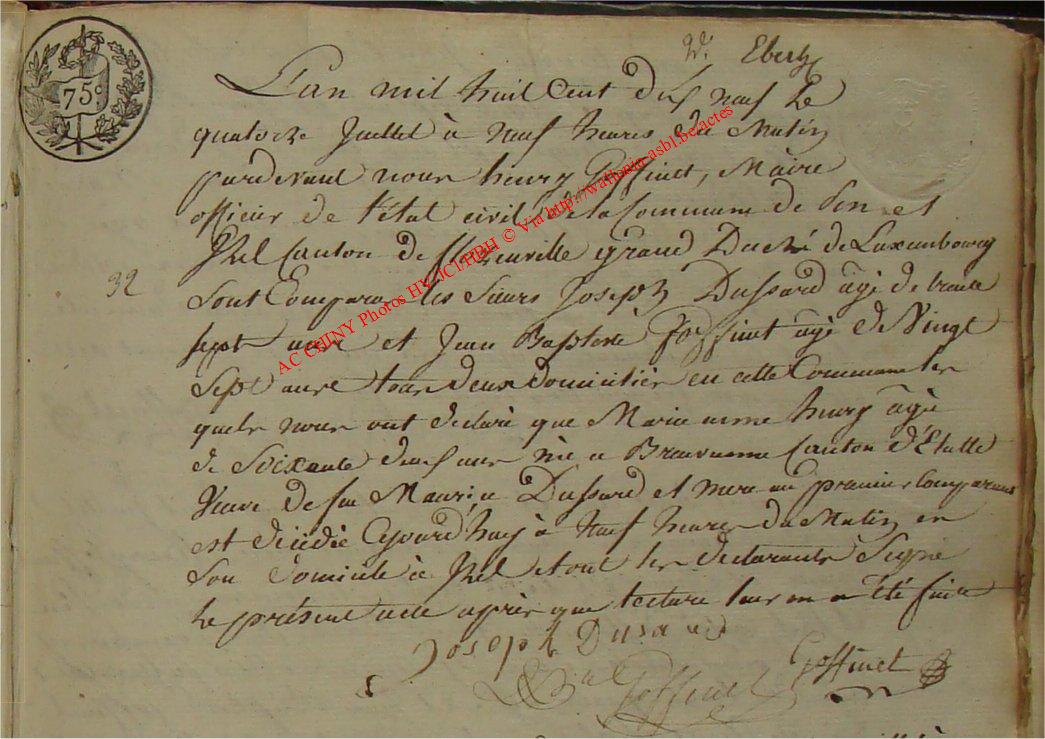 75c
Eberh
L'an mil huit Cent dix neuf Le
quatorze Juillet à neuf heures du Matin
pardevant nous henry Goffinet, Maire
officier de l'état civil de la Commune de Pin et
Izel Canton de florenville grand Duché de Luxembourg
32
Sont Comparu les Sieurs Joseph Dussard âgé de trente
sept ans et Jean Baptiste Goffinet âgé de Vingt
Sept ans tous deux domiciliés en cette Commune les
quels nous ont declaré que Marie anne henry âgée
de Soixante dix ans née a Canton d'Etalle
Veuve de feu Dussard et mere au premier Comparant
est décédée à neuf heures du Matin en
Son domicile à Izel et ont les declarants Signé
Le présent acte après que lecture leur en a été faite
Joseph Dusard
Goffinet
Goffinet
AC CHINY Photos HY.JCl/RBH © Via http://wallonia-asbl.be/actes